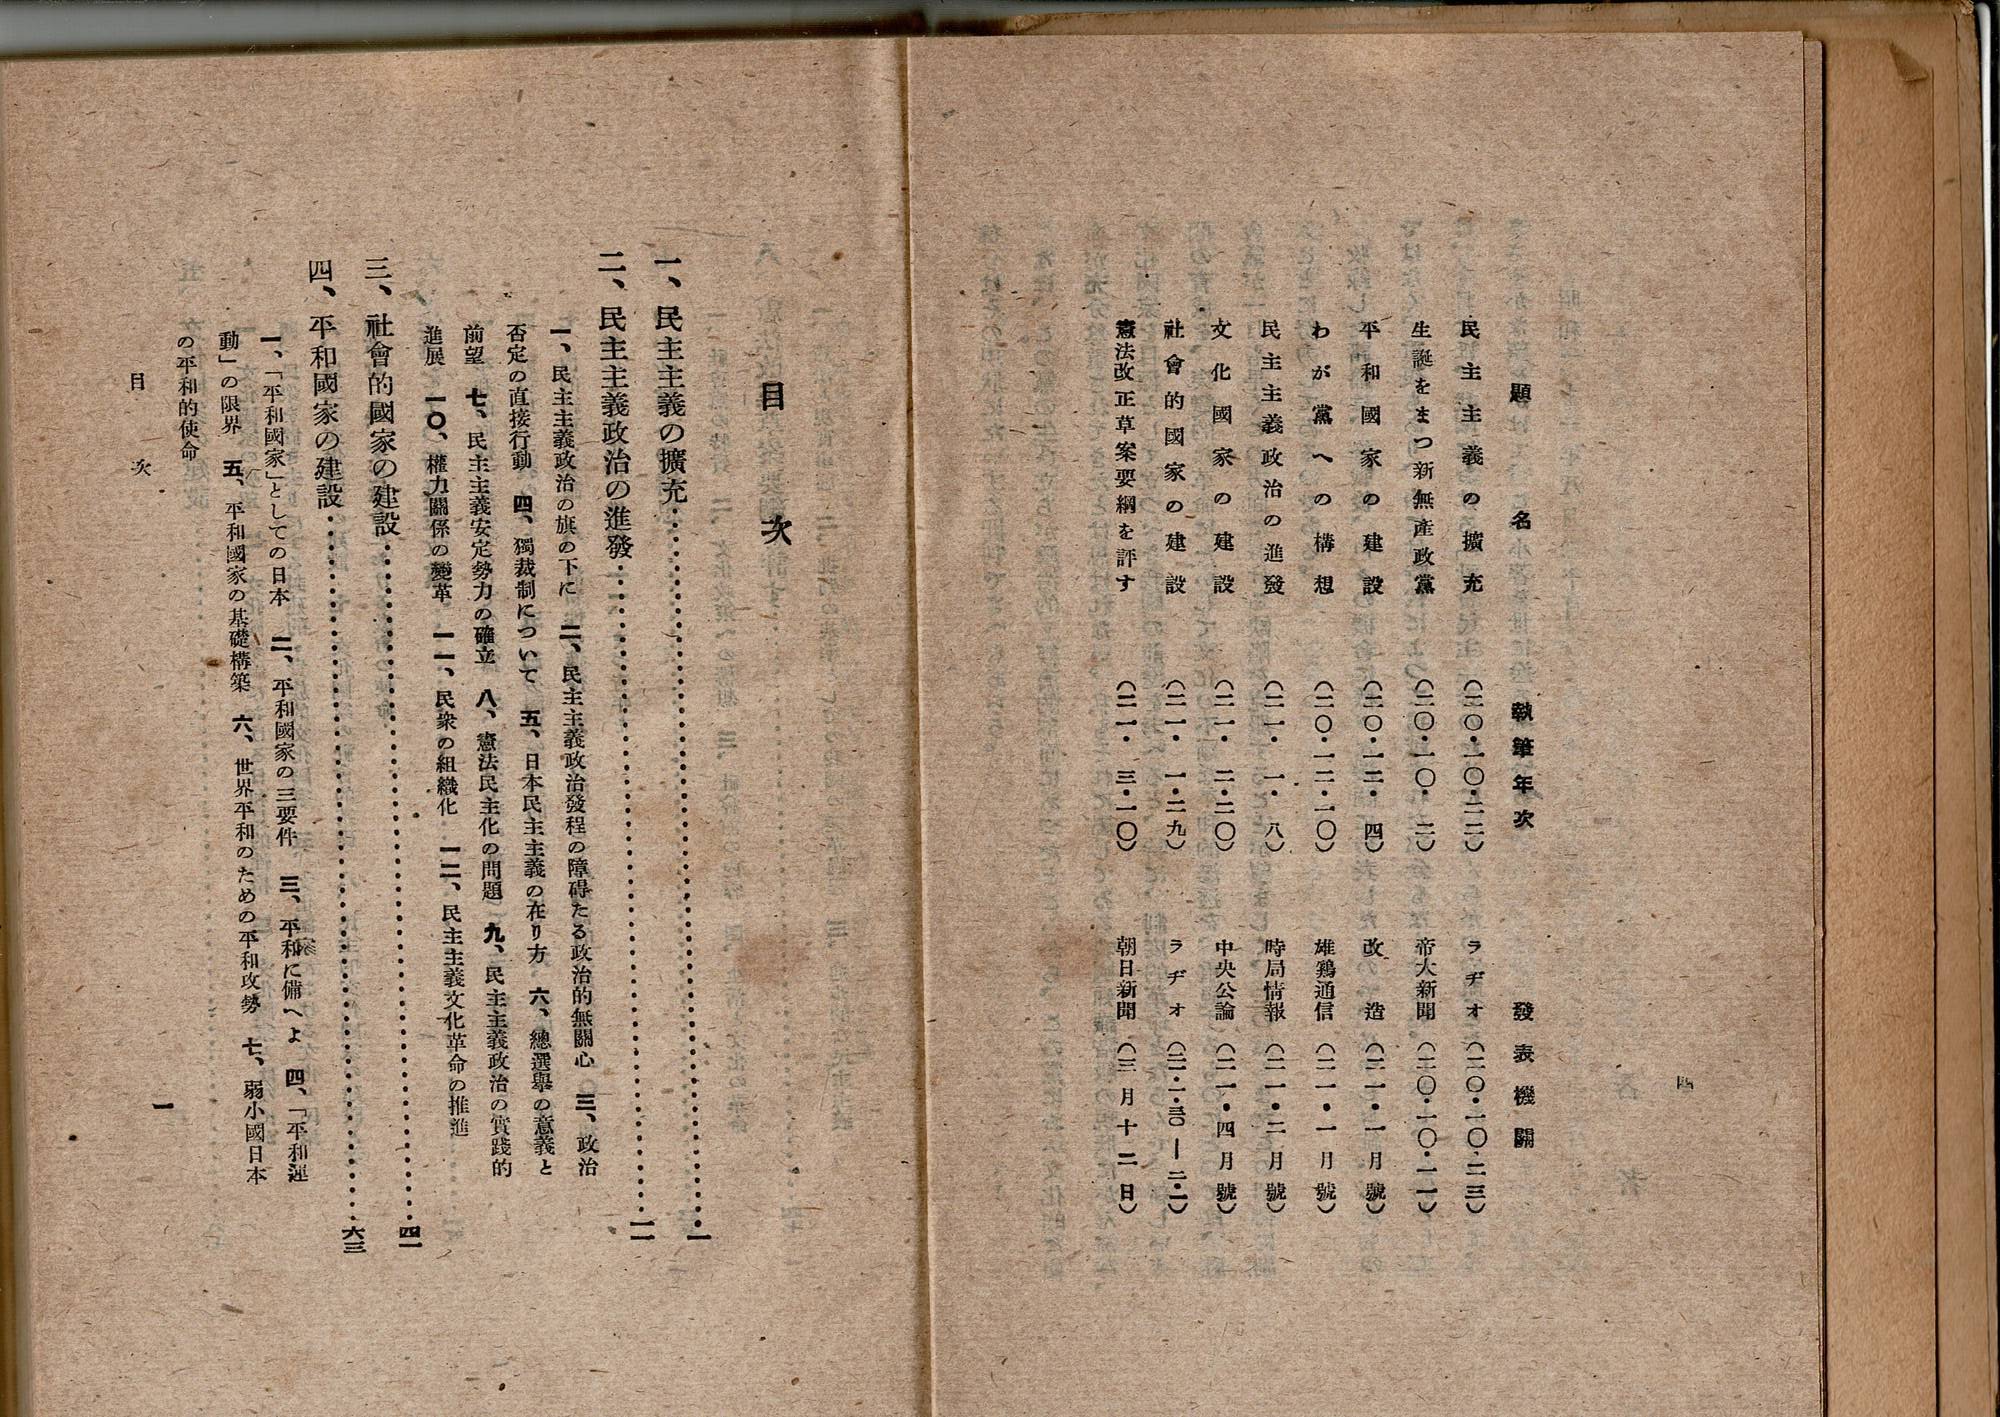 四
題名 執筆年次 發表機關
民主主義の擴充 (二〇・一〇・二二) ラヂオ (二〇・一〇・二三)
生誕をまつ新無產政黨 (二〇・一〇・二) 帝大新聞 (二〇・一〇・一一)
平和國家の建設 (二〇・一二・四) 改造 (二一・一月號)
わが黨への構想 (二〇・一二・一〇) 雄鷄通信 (二一・一月號)
民主主義政治の進發 (二一・一・八) 時局情報 (二一・二月號)
文化國家の建設 (二一・二・二〇) 中央公論 (二一・四月號)
社會的國家の建設 (二一・一・二九) ラヂオ
憲法改正草案要綱を評す (二一・三・一〇) 朝日新聞 (三月十二日)
目次
一、民主主義の擴充……一
二、民主主義政治の進發……一一
一、民主主義政治の旗の下に 二、民主主義政治發程の障碍たる政治的無關心 三、政治
否定の直接行動 四、獨裁制について 五、日本民主主義の在り方 六、總選擧の意義と
前望 七、民主主義安定勢力の確立 八、憲法民主化の問題 九、民主主義政治の實踐的
進展 一〇、權力關係の變革 一一、民衆の組織化 一二、民主主義文化革命の推進
三、社會的國家の建設……四一
四、平和國家の建設……六三
一、「平和國家」としての日本 二、平和國家の三要件 三、平和に備へよ 四、「平和運
動」の限界 五、平和國家の基礎構築 六、世界平和のための平和攻勢 七、弱小國日本
の平和的使命
目次 一